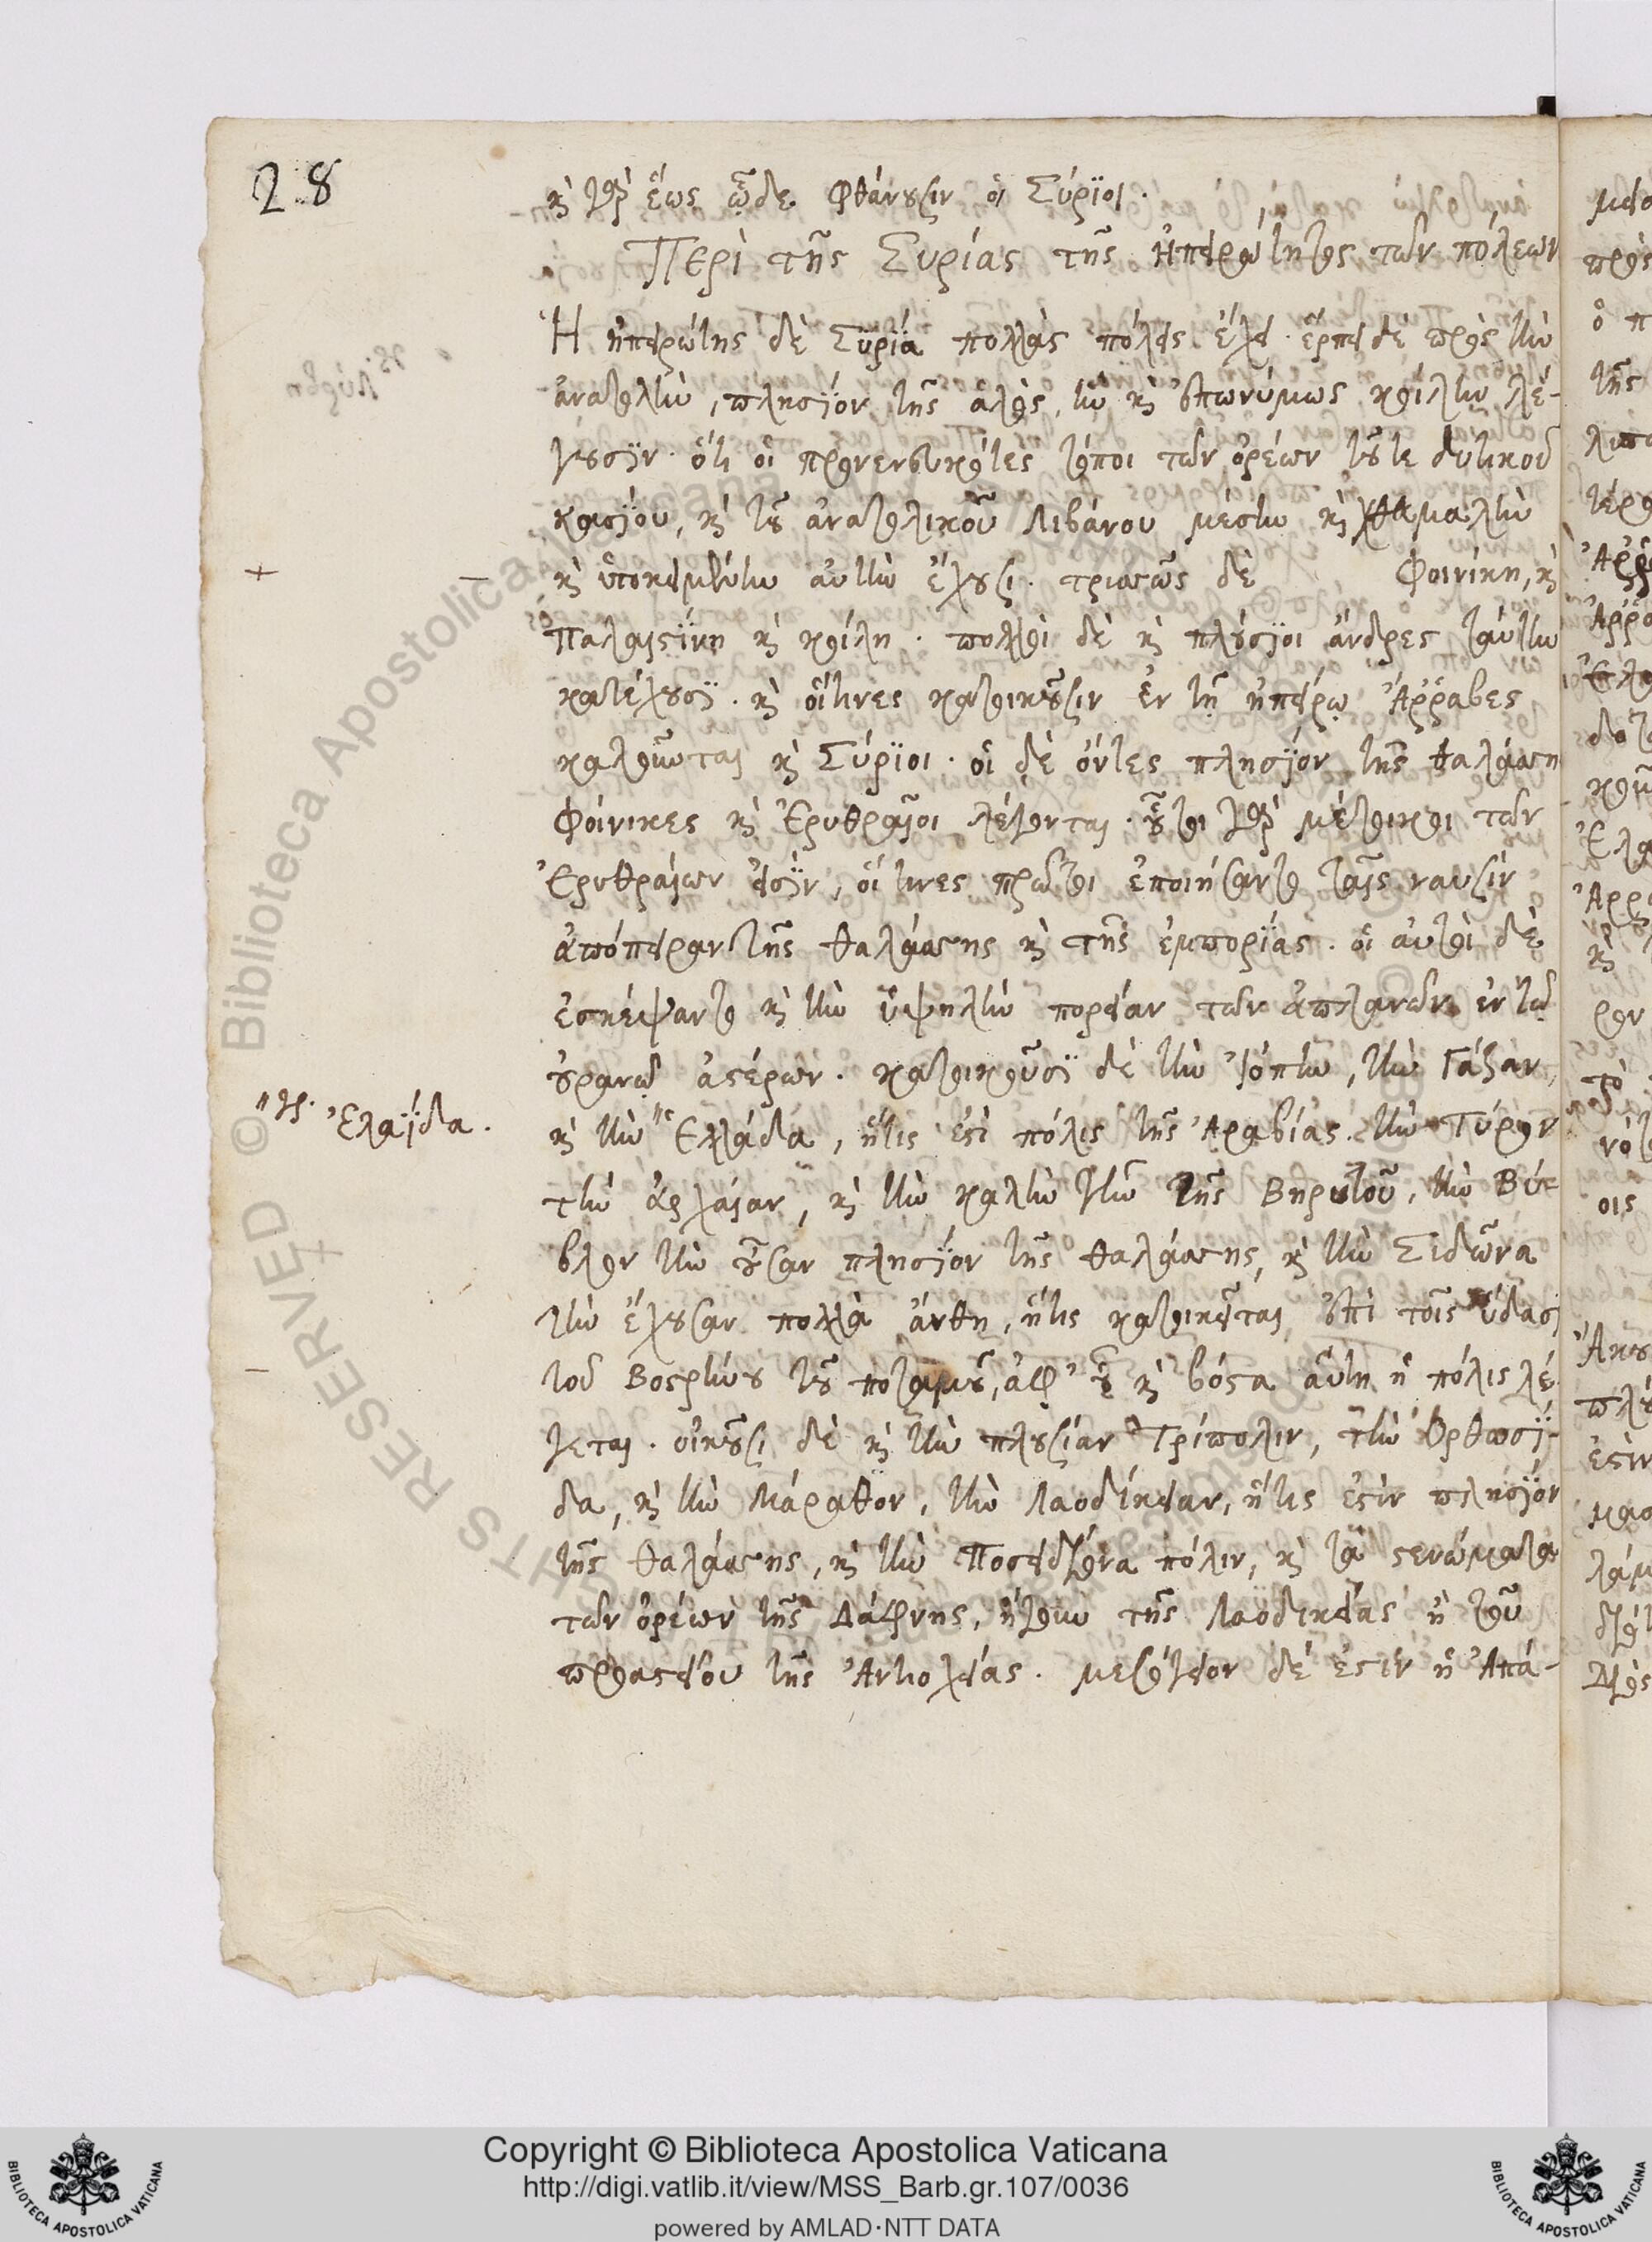 28
κὶ γὰρ ἕως ὧδε φθάνουσιν οἱ Σύριοι.
Περὶ τῆς Συρίας τῆς ἠπειρώτιδος τῶν πόλεων
Ἡ ἠπειρώτης δὲ Συρία πολλὰς πόλεις ἔχει. ἕρπει δὲ πρὸς τὴν
ἀνατολὴν, πλησίον τῆς ἁλὸς, ἣν κὶ ἐπωνύμως κοίλην λέ-
γουσιν. ὅτι οἱ προνενευκότες τόποι τῶν ὀρέων τοῦ τε δυτικοῦ
κασίου, κὶ τοῦ ἀνατολικοῦ Λιβάνου μέσην κὶ χθαμαλὴν
κὶ ὑποκειμένην αὐτὴν ἔχουσι. τρισσῶς δὲ Φοινίκη, κὶ
Παλαιστίνη κὶ κοίλη. πολλοὶ δὲ κὶ πλούσιοι ἄνδρες ταύτην
κατέχουσι. κὶ οἵτινες κατοικοῦσιν ἐν τῇ ἠπείρῳ Ἄρραβες
καλοῦνται κὶ Σύριοι. οἱ δὲ ὄντες πλησίον τῆς θαλάσση
Φοίνικες κὶ Ἐρυθραῖοι λέγονται. οὗτοι γὰρ μέτοικοι τῶν
Ἐρυθραίων εἰσὶν, οἵτινες πρῶτοι ἐποιήσαντο ταῖς ναυσὶν
ἀπόπειραν τῆς θαλάσσης κὶ τῆς ἐμπορίας. οἱ αὐτοὶ δὲ
ἐσκέψαντο κὶ τὴν ὑψηλὴν πορείαν τῶν ἀπλανῶν ἐν τῷ
οὐρανῷ ἀστέρων. κατοικοῦσι δὲ τὴν Ἰόπην, τὴν Γάζαν,
κὶ τὴν Ἑλλάδα, ἥτις ἐστὶ πόλις τῆς Ἀραβίας. τὴν Τύρον
Ἐλαΐδα.
τὴν ἀρχαίαν, κὶ τὴν καλὴν γῆν τῆς Βηρυτοῦ, τὴν Βύ-
βλον τὴν οὖσαν πλησίον τῆς θαλάσσης, κὶ τὴν Σιδῶνα
τὴν ἔχουσαν πολλὰ ἄνθη, ἥτις κατοικεῖται ἐπὶ τοῖς ὕδασι
τοῦ Βοστρήνου τοῦ ποταμοῦ, ἀφ' οὗ κὶ βόστρα αὕτη ἡ πόλις λέ
γεται. οἰκοῦσι δὲ κὶ τὴν πλουσίαν Τρίπολιν, τὴν Ὀρθωσί-
δα, κὶ τὴν Μάραθον, τὴν Λαοδίκειαν, ἥτις ἐστὶν πλησίον
τῆς θαλάσσης, κὶ τὴν Ποσειδῶνα πόλιν, κὶ τὰ στενώματα
τῶν ὀρέων τῆς Δάφνης, ἤγουν τῆς Λαοδικείας ἢ τοῦ
προαστείου τῆς Ἀντιοχείας. μεσόγειον δέ ἐστιν ἡ Ἀπά-
Copyright © Biblioteca Apostolica Vaticana
http://digi.vatlib.it/view/MSS_Barb.gr.107/0036
powered by AMLAD·NTT DATA
BIBLIOTECA APOSTOLICA VATICANA
BIBLIOTECA APOSTOLICA VATICANA